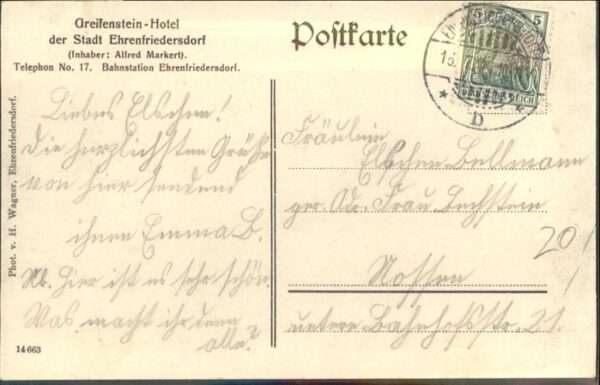 Greifenstein-Hotel
der Stadt Ehrenfriedersdorf
(Inhaber: Alfred Markert).
Telephon No. 17. Bahnstation Ehrenfriedersdorf.
Postkarte
5
15.
REICH
* b *
Phot. v. H. Wagner, Ehrenfriedersdorf.
Liebes Elschen!
Die herzlichsten Grüße
von hier sendend
ihnen Emma B.
Nb. Hier ist es sehr schön.
Was macht ihr denn
alle?
14663
Fräulein
Elschen Bellmann
per Adr. Frau Bechstein
Nossen
untere Bahnhofstr. 21.
20